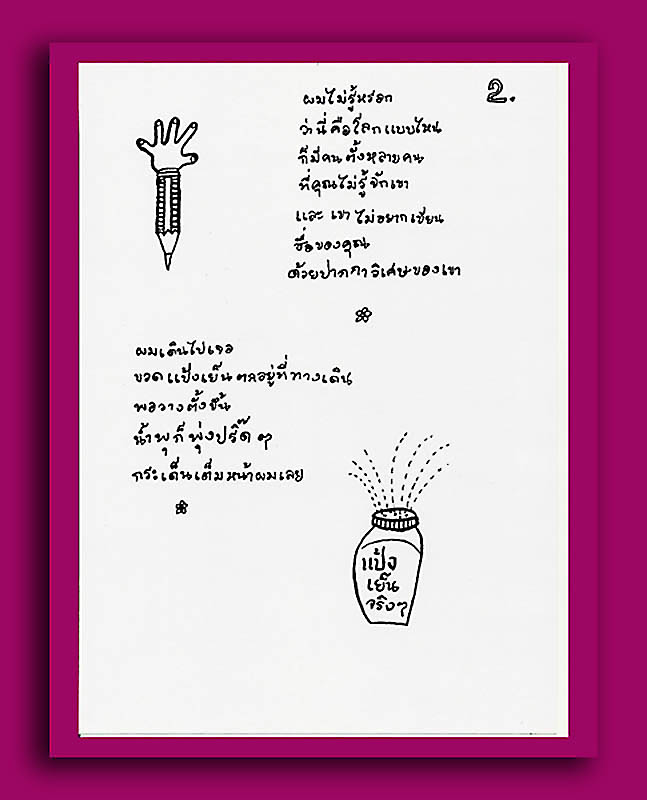 2.
ผมไม่รู้หรอก
ว่านี่คือโลกแบบไหน
ก็มีคนตั้งหลายคน
ที่คุณไม่รู้จักเขา
และ เขา ไม่อยากเขียน
ชื่อของคุณ
ด้วยปากกาวิเศษของเขา
ผมเดินไปเจอ
ขวดแป้งเย็นตกอยู่ที่ทางเดิน
พอวางตั้งขึ้น
น้ำพุก็พุ่งปรี๊ดๆ
กระเด็นเต็มหน้าผมเลย
แป้ง
เย็น
จริงๆ